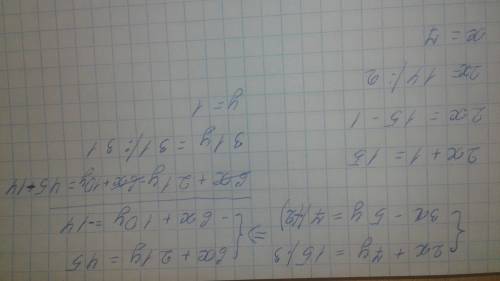 { 2x + 7y = 15 |·3
{ 3x - 5y = 7 |·(-2)
=> { 6x + 21y = 45
{ -6x + 10y = -14
6x + 21y - 6x + 10y = 45 - 14
31y = 31 |:31
y = 1
2x + 1 = 15
2x = 15 - 1
2x = 14 |:2
x = 7